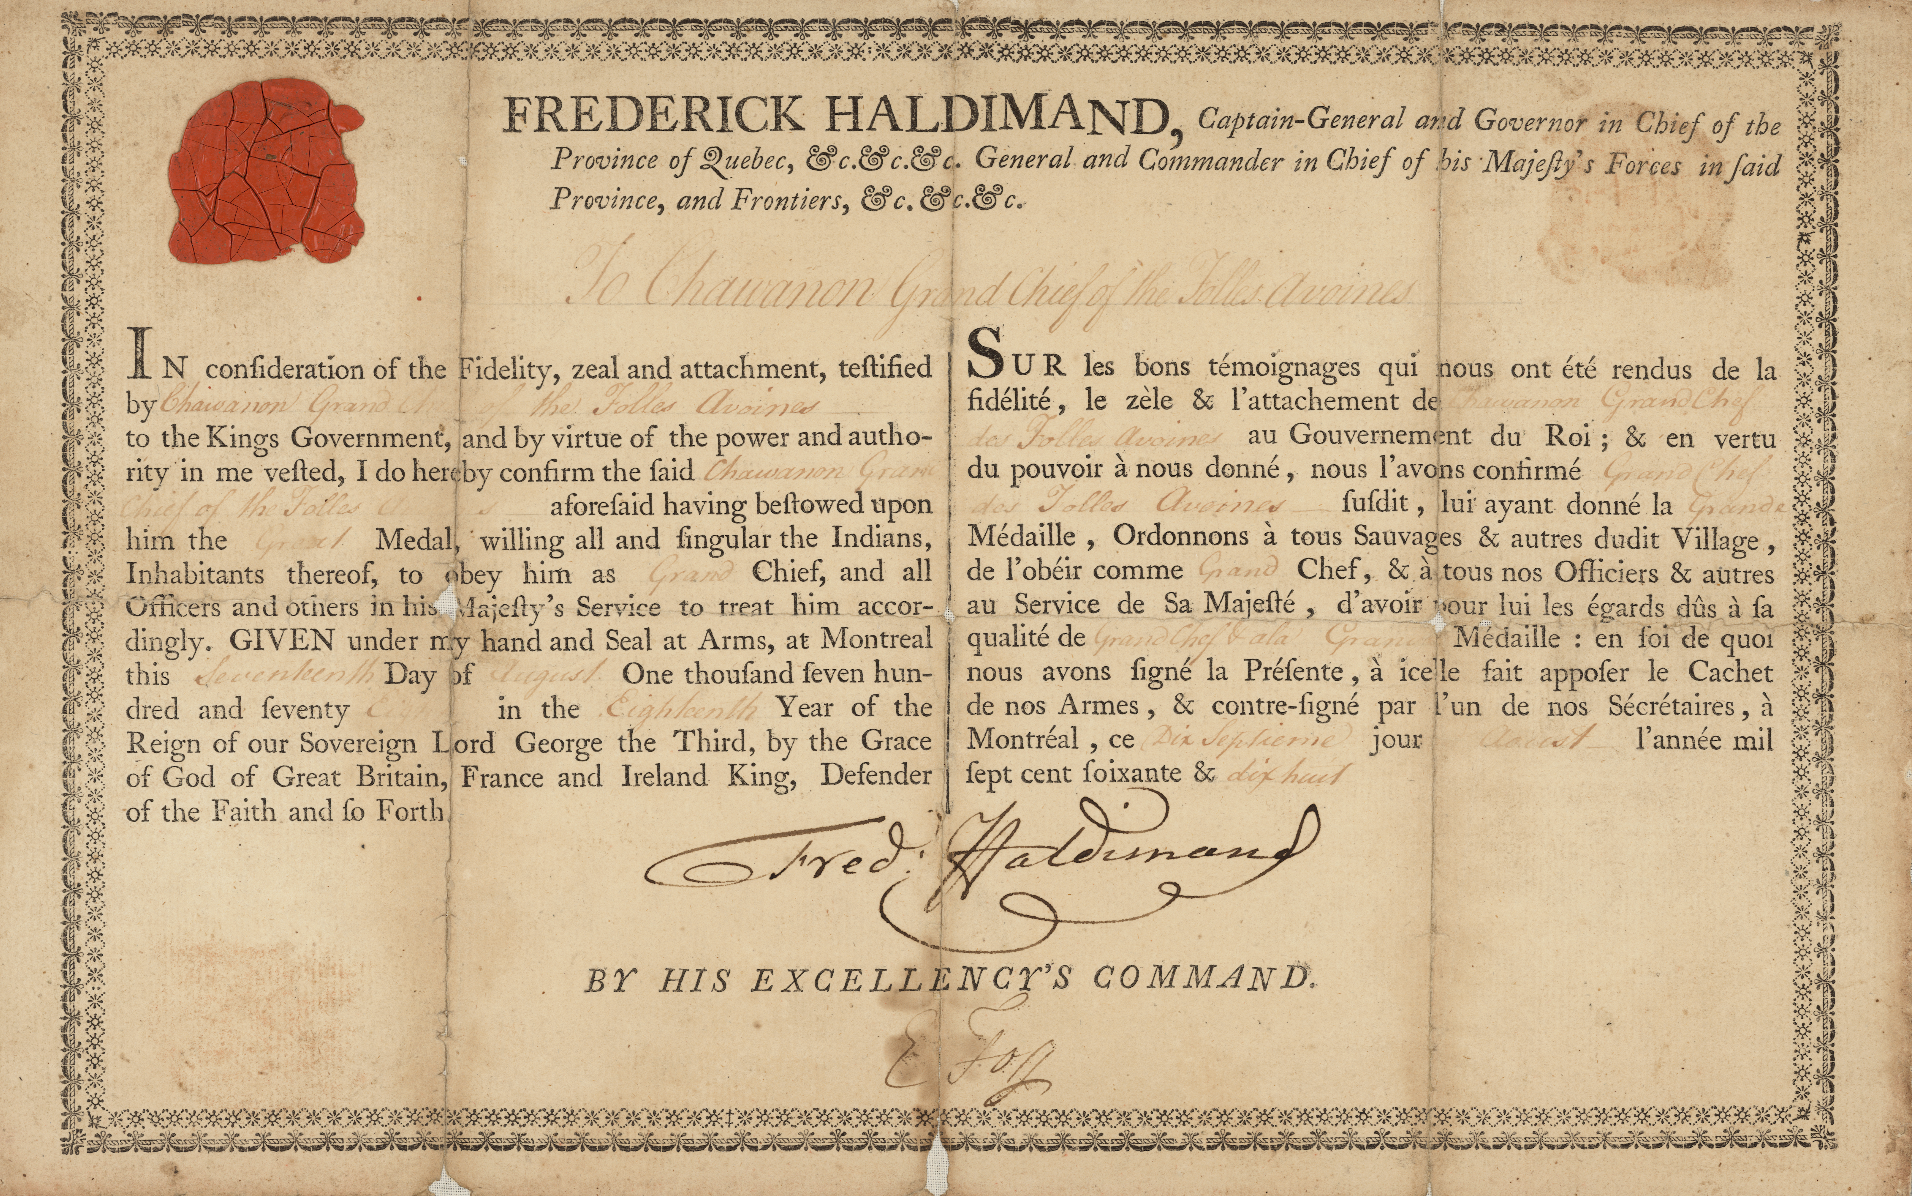 FREDERICK HALDIMAND, Captain-General and Governor in Chief of the
Province of Quebec, &c.&c.&c. General and Commander in Chief of his Majeſty's Forces in ſaid
Province, and Frontiers, &c. &c.&c.
To Chawanon Grand Chief of the Folles Avoines
IN conſideration of the Fidelity, zeal and attachment, teſtified
by Chawanon Grand of the Folles Avoines
to the Kings Government, and by virtue of the power and autho-
rity in me veſted, I do hereby confirm the ſaid Chawanon Grand
Chief of the Folles aforeſaid having beſtowed upon
him the Great Medal, willing all and ſingular the Indians,
Inhabitants thereof, to obey him as Grand Chief, and all
Officers and others in his Majeſty's Service to treat him accor-
dingly. GIVEN under my hand and Seal at Arms, at Montreal
this Seventeenth Day of August One thouſand ſeven hun-
dred and ſeventy in the Eighteenth Year of the
Reign of our Sovereign Lord George the Third, by the Grace
of God of Great Britain, France and Ireland King, Defender
of the Faith and ſo Forth
SUR les bons témoignages qui nous ont été rendus de la
fidélité, le zèle & l'attachement de Chawanon Grand Chef
des Folles Avoines au Gouvernement du Roi ; & en vertu
du pouvoir à nous donné, nous l'avons confirmé Grand Chef
des Folles Avoines ſuſdit, lui ayant donné la Grande
Médaille, Ordonnons à tous Sauvages & autres dudit Village,
de l'obéir comme Grand Chef, & à tous nos Officiers & autres
au Service de Sa Majeſté, d'avoir pour lui les égards dûs à ſa
qualité de Grand Chef & a la Grande Médaille : en foi de quoi
nous avons ſigné la Préſente, à icelle fait appoſer le Cachet
de nos Armes, & contre-ſigné par l'un de nos Sécrétaires, à
Montréal, ce Dix Septieme jour Aoust l'année mil
ſept cent ſoixante & dix huit
Fred: Haldimand
BY HIS EXCELLENCY'S COMMAND.
E Foy